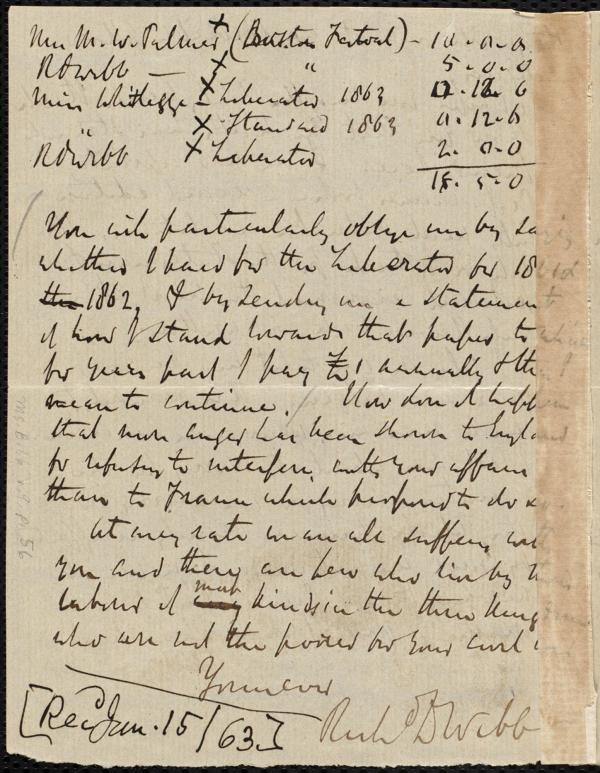 Mrs M. W. Palmer × (Boston Festival) - 10 . 0 . 0
RDWebb — × " 5 . 0 . 0
Miss Whitlegge - × Liberator 1863 0 . 12 . 6
" × Standard 1863 0 . 12 . 6
RDWebb × Liberator 2 . 0 . 0
18 . 5 . 0
You will particularly oblige me by saying
whether I paid for the Liberator for
the 1862, & by sending me a statement
of how I stand towards that paper to
for years past I pay £1 annually & that I
mean to continue. / How does it happen
that more anger has been shown to England
for refusing to interfere with your affairs
than to France which proposed to do so
At any rate we are all suffering with
you and there are few who live by
labour of any most kinds in the three Kingdoms
who are not the poorer for your civil
Yours ever
Richd D Webb
[Recd Jan. 15/63.]